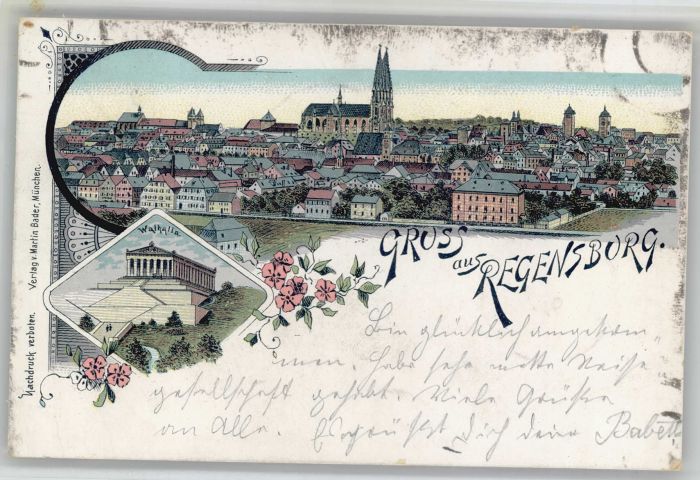 Verlag v. Martin Bader, München.
Nachdruck verboten.
Walhalla
GRUSS
aus
REGENSBURG.
Bin glücklich angekom„
men. Habe sehr nette Reise„
gesellschaft gehabt. Viele Grüße
an Alle. Es grüßt Dich deine Babett